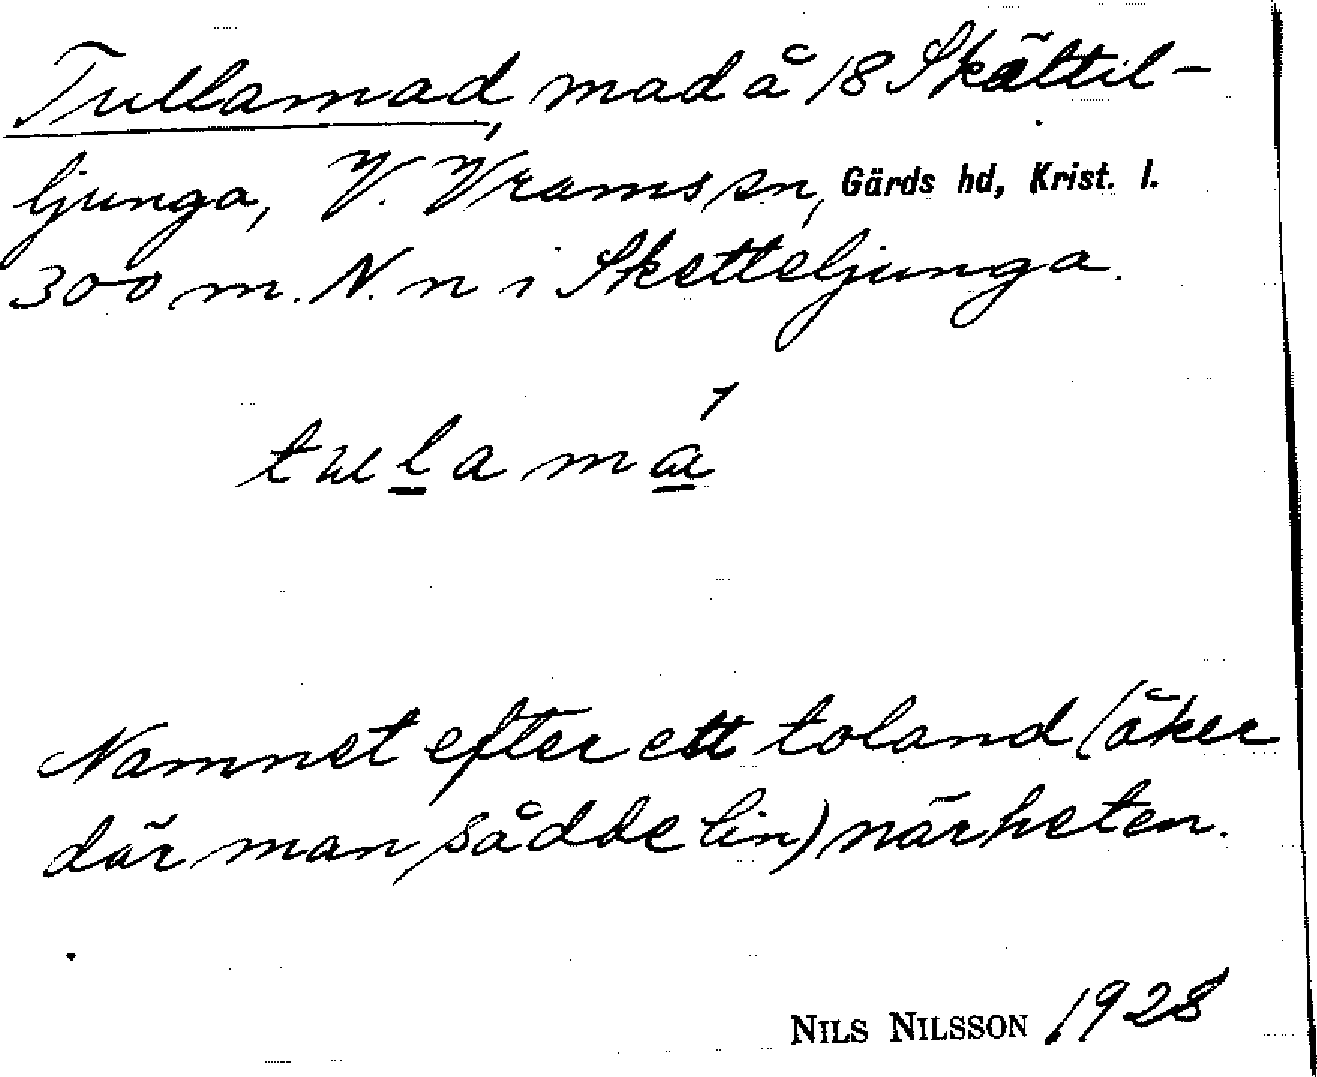 Tullamad, mad å 18 Skättil-
ljunga, V. Vrams sn, Gärds hd, Krist. l.
300 m. N. n i Sketteljunga.
tulamá
Namnet efter ett toland (åker
där man sådde lin) närheten.
NILS NILSSON 1928